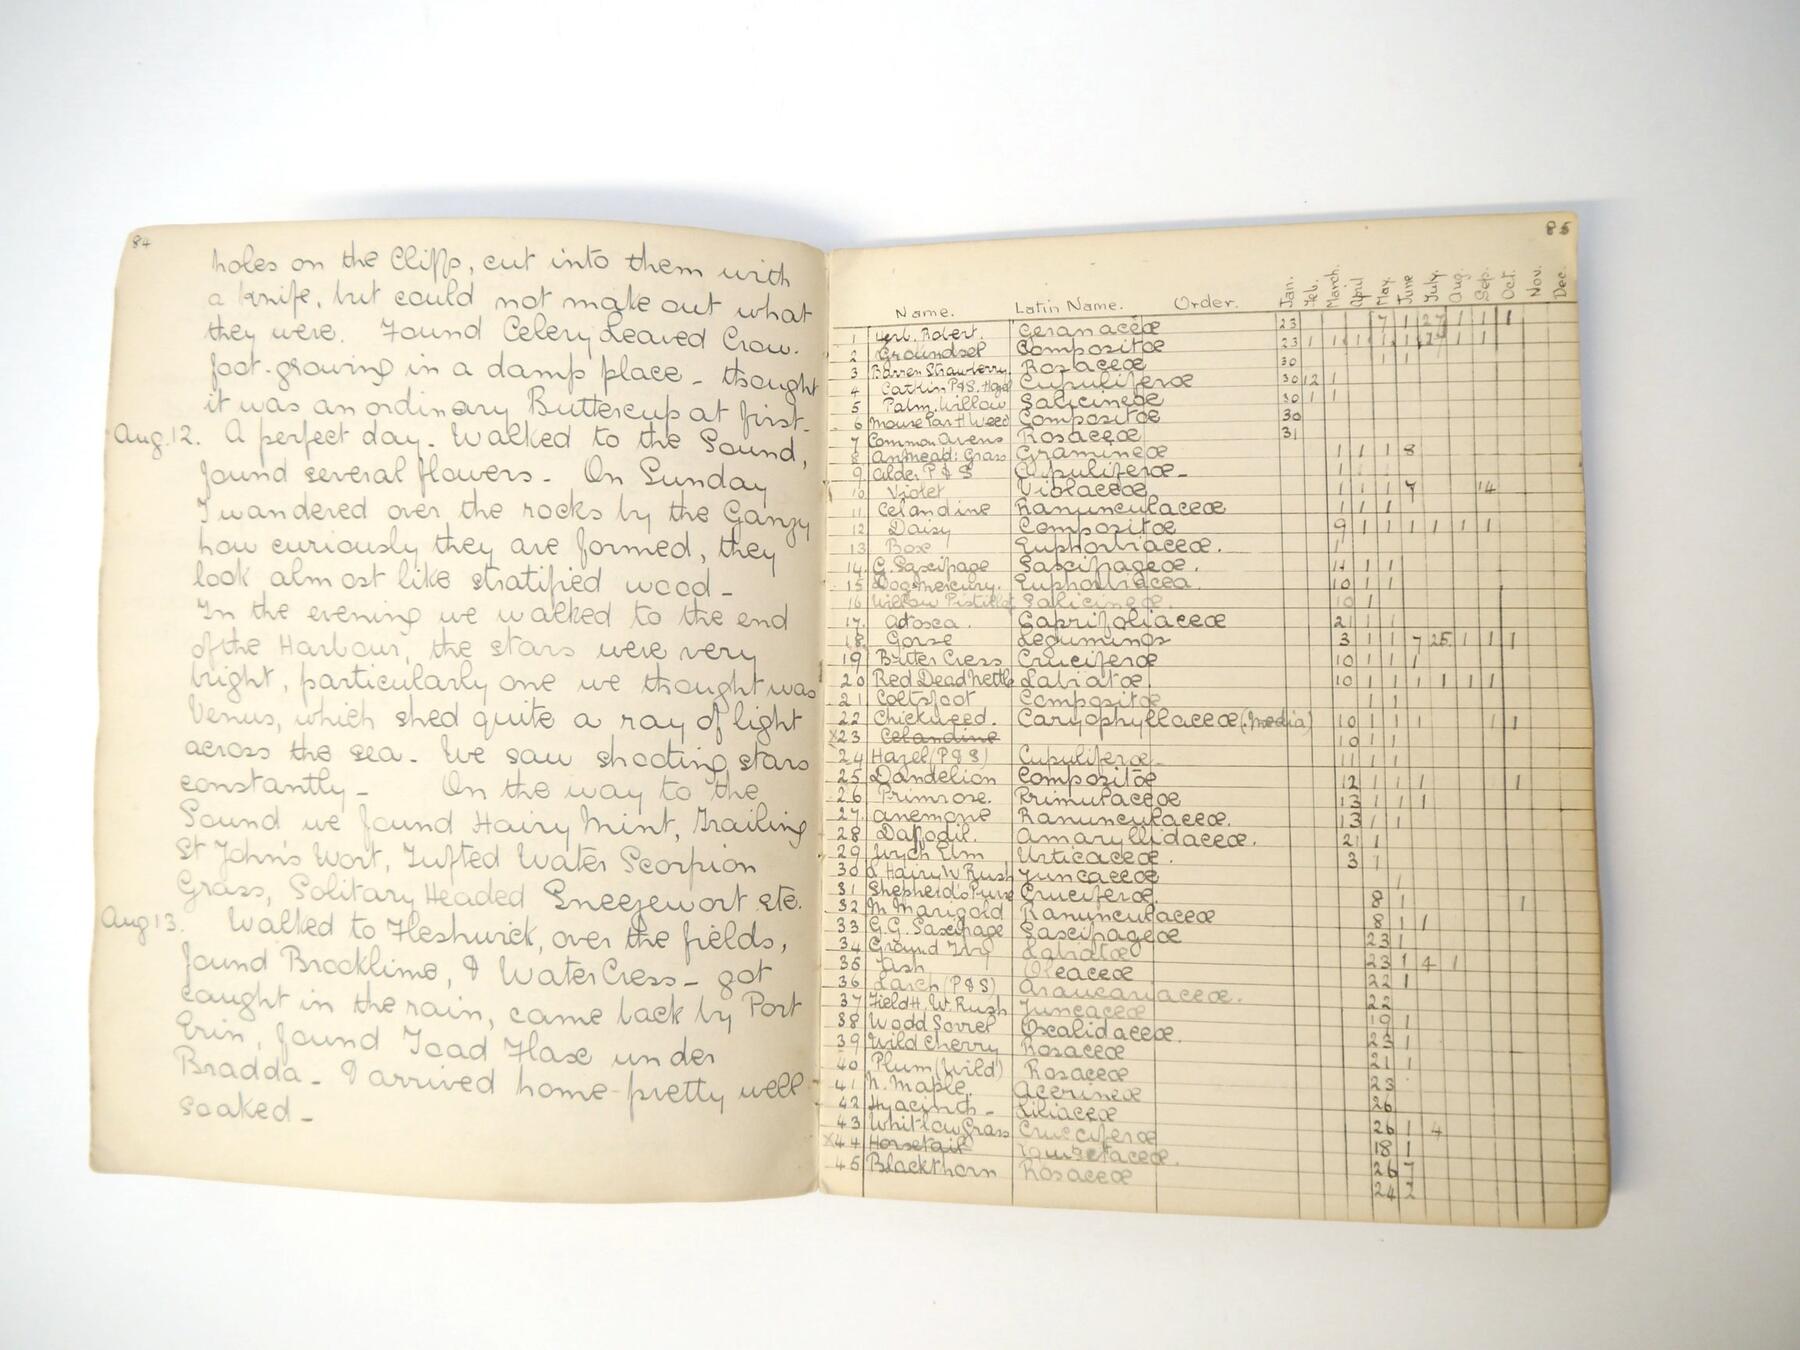 84
holes on the Cliffs, cut into them with
a knife, but could not make out what
they were. Found Celery Leaved Crow-
foot-growing in a damp place - thought
it was an ordinary Buttercup at first.
Aug.12. A perfect day. Walked to the Sound,
found several flowers - On Sunday
I wandered over the rocks by the
how curiously they are formed, they
look almost like stratified wood -
In the evening we walked to the end
of the Harbour, the stars were very
bright, particularly one we thought was
Venus, which shed quite a ray of light
across the sea - We saw shooting stars
constantly - On the way to the
Sound we found Hairy Mint, Trailing
St John's Wort, Tufted Water Scorpion
Grass, Solitary Headed Sneezewort etc.
Aug 13. Walked to Fleshwick, over the fields,
found Brooklime, & Water Cress - got
caught in the rain, came back by Port
Erin, found Toad Flax under
Bradda - I arrived home pretty well
soaked -
85
Name. Latin Name. Order. Jan. Feb. March. April May. June July. Aug. Sep. Oct. Nov. Dec.
1 Herb. Robert. Geranaceæ 23 7 1 27 1 1 1
2 Groundsel Compositæ 23 1 1 1 1 1 1 1
3 Barren Strawberry Rosaceæ 30 1 1
4 Catkin P&S. Hazel Cupuliferæ 30 12 1
5 Palm. Willow Salicineæ 30 1 1
6 Mouse Ear H Weed Compositæ 30
7 Common Avens Rosaceæ 31
8 An Mead: Grass Gramineæ 1 1 1 8
9 Alder P & S Cupuliferæ - 1 1
10 Violet Violaceæ 1 1 1 7 14
11 Celandine Ranunculaceæ 1 1 1
12 Daisy Compositæ 9 1 1 1 1 1 1
13 Box Euphorbiaceæ. 1
14. G. Saxifrage Saxifrageæ. 11 1 1
15 Dog Mercury. Euphorbiacea 10 1 1
16 Willow Pistillate Salicineæ. 10 1
17. Adoxa. Caprifoliaceæ 21 1 1
18. Gorse Leguminos 3 1 1 7 25 1 1 1
19 Bitter Cress Cruciferæ 10 1 1 1
20 Red Dead Nettle Labiatæ 10 1 1 1 1 1 1
21 Coltsfoot Compositæ 1 1
22 Chickweed. Caryophyllaceæ (Media) 10 1 1 1 1 1
x23 Celandine 10 1 1
24 Hazel (P & S) Cupuliferæ - 11 1 1
25 Dandelion Compositæ 12 1 1 1 1
26 Primrose. Primulaceæ 13 1 1 1
27. Anemone Ranunculaceæ. 13 1 1
28 Daffodil. Amaryllidaceæ. 21 1
29 Wych Elm Urticaceæ. 3 1
30 Hairy W Rush Juncaceæ 1
31 Shepherd's Purse Cruciferæ. 8 1 1
32 M Marigold Ranunculaceæ 8 1 1
33 G.G. Saxifrage Saxifrageæ 23 1
34 Ground Ivy Labiatæ 23 1 4 1
35 Ash Oleaceæ 22 1
36 Larch (P & S) Araucariaceæ. 22
37 Field H. W. Rush Juncaceæ 19 1
38 Wood Sorrel Oxalidaceæ. 23 1
39 Wild Cherry Rosaceæ 21 1
40 Plum (Wild) Rosaceæ 23
41 N. Maple. Acerineæ 26
42 Hyacinth - Liliaceæ 26 1 4
43 Whitlow Grass Cruciferæ 18 1
x44 Horsetail 26 7
45 Blackthorn Rosaceæ 24 2